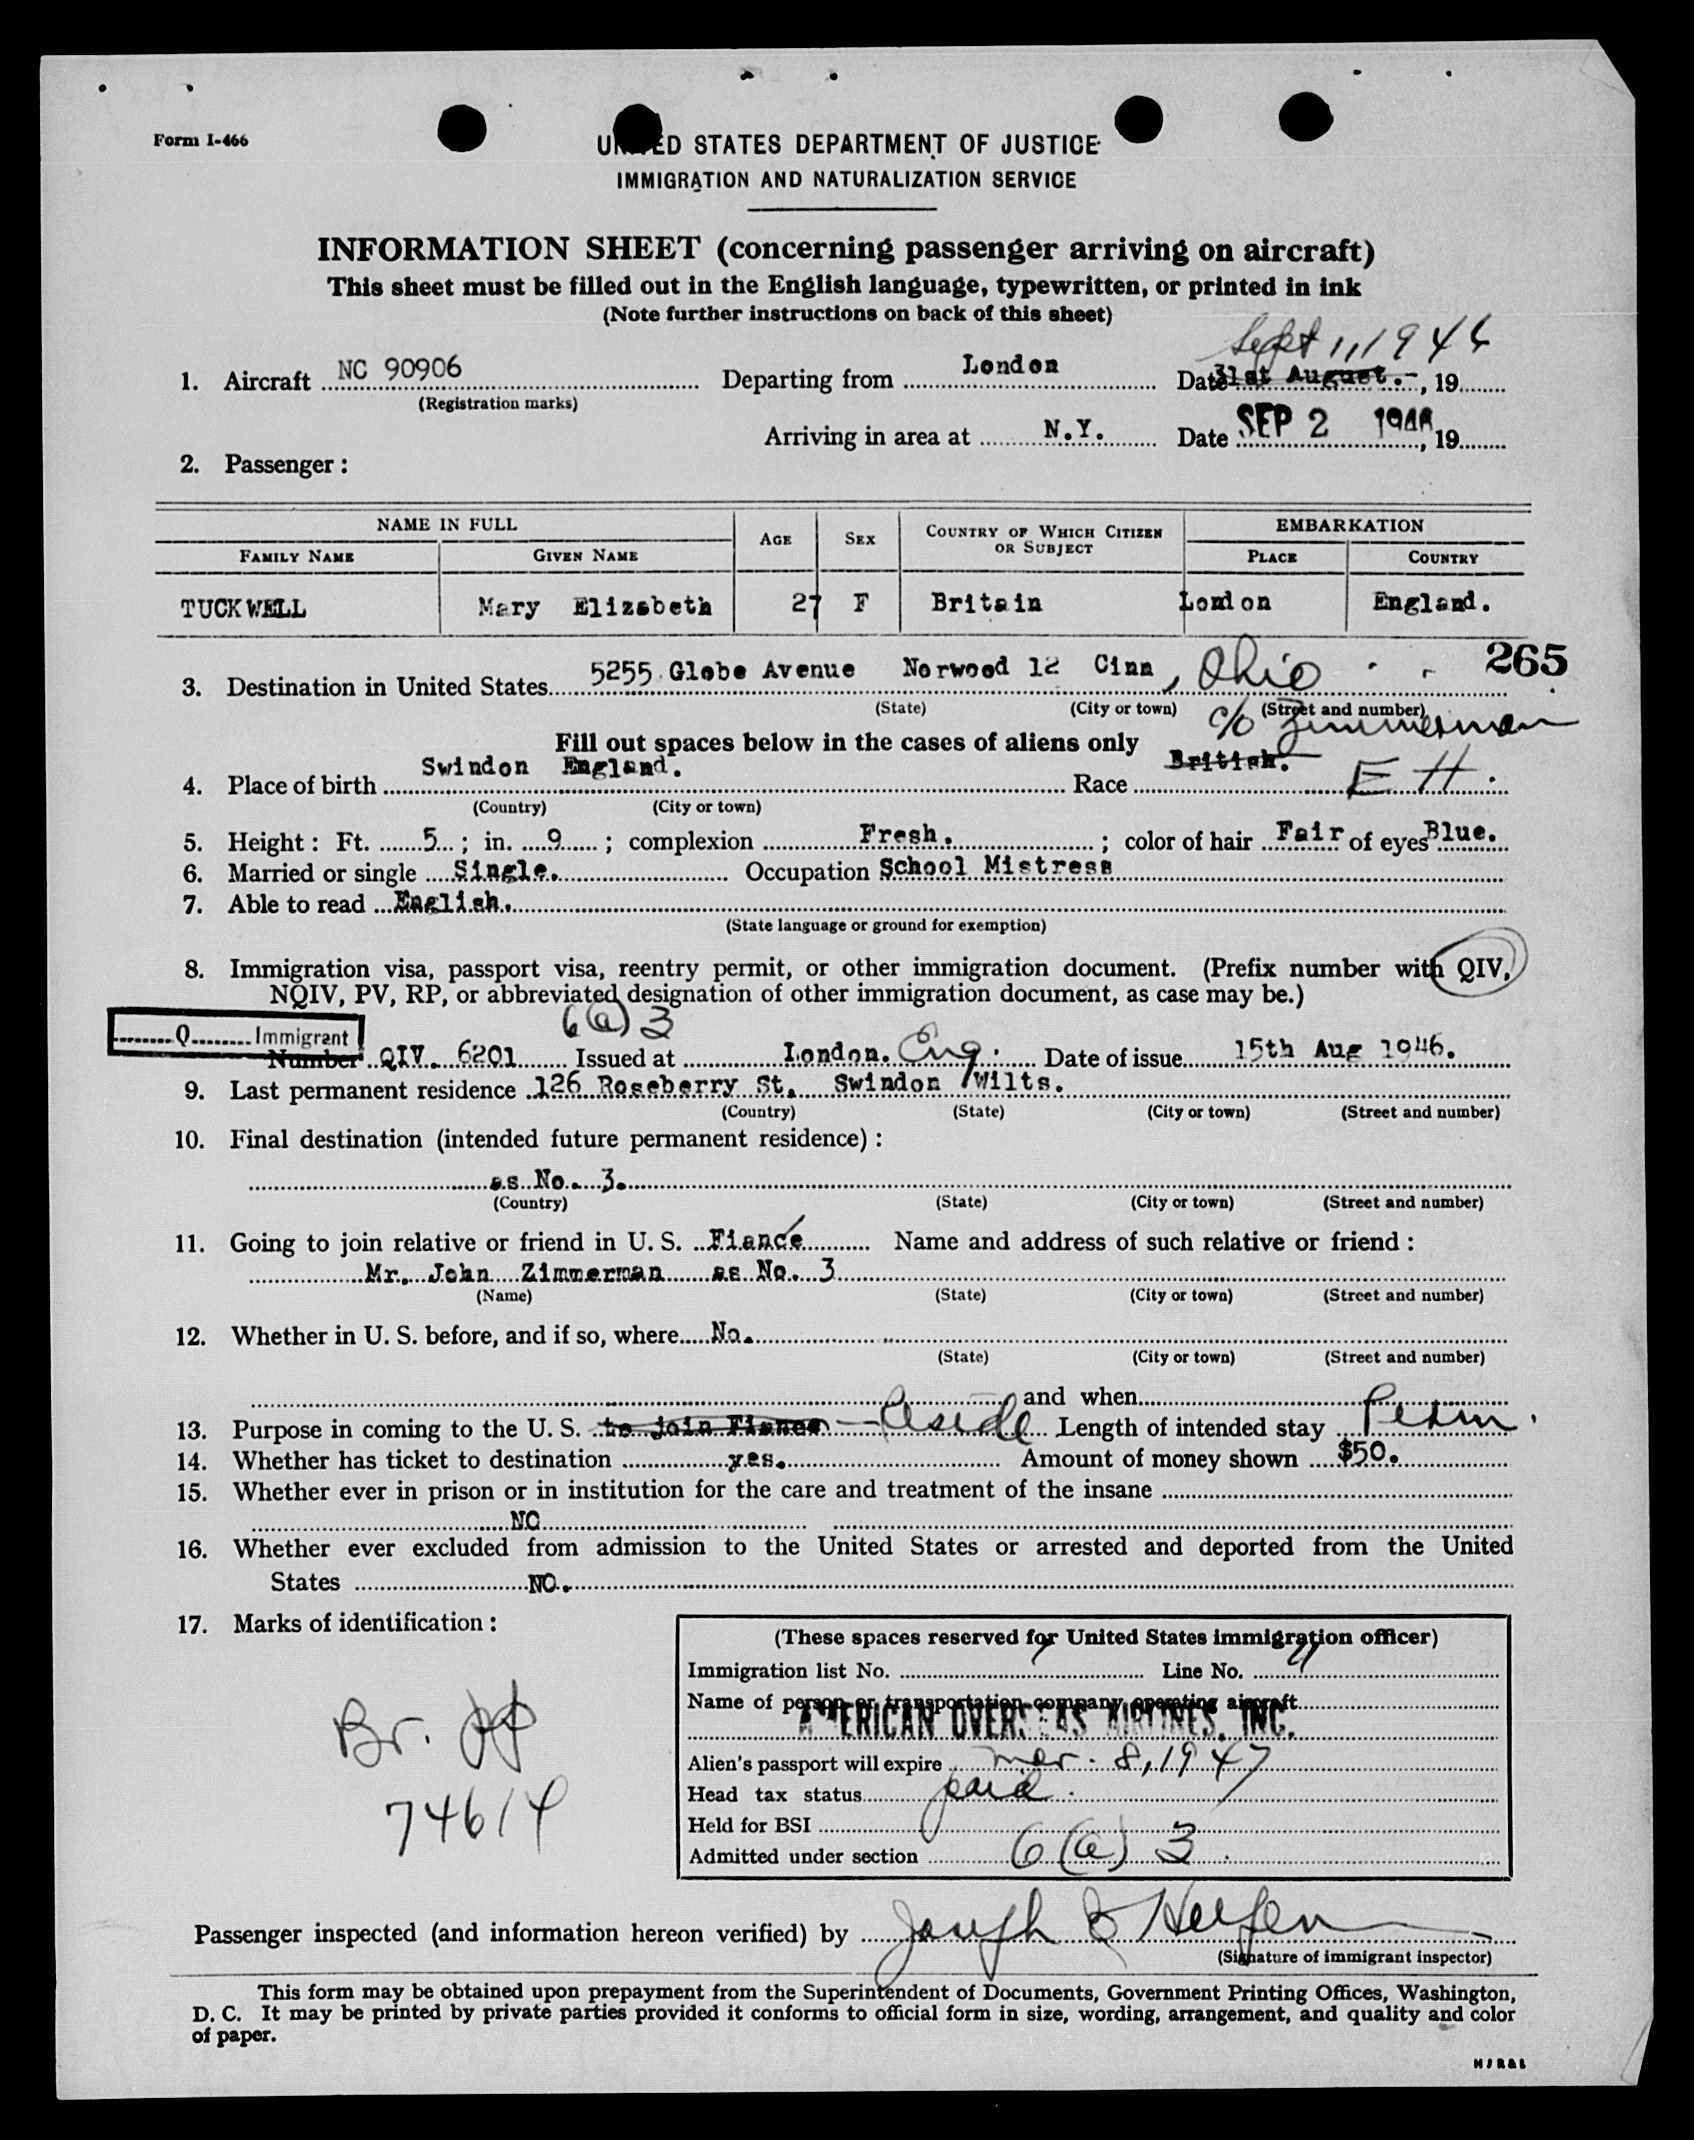 Form I-466
UNITED STATES DEPARTMENT OF JUSTICE
IMMIGRATION AND NATURALIZATION SERVICE
INFORMATION SHEET (concerning passenger arriving on aircraft)
This sheet must be filled out in the English language, typewritten, or printed in ink
(Note further instructions on back of this sheet)
Sept 1, 1946
1. Aircraft NC 90906 Departing from London Date 31st August.-, 19
(Registration marks)
Arriving in area at N.Y. Date SEP 2 1946, 19
2. Passenger :
NAME IN FULL AGE SEX COUNTRY OF WHICH CITIZEN OR SUBJECT EMBARKATION
FAMILY NAME GIVEN NAME PLACE COUNTRY
TUCKWELL Mary Elizabeth 27 F Britain London England.
265
3. Destination in United States 5255 Globe Avenue Norwood 12 Cinn, Ohio
(State) (City or town) (Street and number)
c/o Zimmerman
Fill out spaces below in the cases of aliens only
4. Place of birth Swindon England. Race British. EH.
(Country) (City or town)
5. Height : Ft. 5 ; in. 9 ; complexion Fresh. ; color of hair Fair of eyes Blue.
6. Married or single Single. Occupation School Mistress
7. Able to read English.
(State language or ground for exemption)
8. Immigration visa, passport visa, reentry permit, or other immigration document. (Prefix number with QIV,
NQIV, PV, RP, or abbreviated designation of other immigration document, as case may be.)
Q Immigrant 6(a)3
Number QIV. 6201 Issued at London. Eng. Date of issue 15th Aug 1946.
9. Last permanent residence 126 Roseberry St, Swindon Wilts.
(Country) (State) (City or town) (Street and number)
10. Final destination (intended future permanent residence) :
as No. 3.
(Country) (State) (City or town) (Street and number)
11. Going to join relative or friend in U. S. Fiance Name and address of such relative or friend :
Mr. John Zimmerman as No. 3
(Name) (State) (City or town) (Street and number)
12. Whether in U. S. before, and if so, where No.
(State) (City or town) (Street and number)
and when
13. Purpose in coming to the U. S. to join Fiance - Reside Length of intended stay Perm.
14. Whether has ticket to destination yes. Amount of money shown $50.
15. Whether ever in prison or in institution for the care and treatment of the insane
NO
16. Whether ever excluded from admission to the United States or arrested and deported from the United
States NO.
17. Marks of identification :
(These spaces reserved for United States immigration officer)
Immigration list No. Line No.
Name of person or transportation company operating aircraft
AMERICAN OVERSEAS AIRLINES, INC.
Br. PP
74614
Alien's passport will expire Mar. 8, 1947
Head tax status paid.
Held for BSI
Admitted under section 6(a) 3
Passenger inspected (and information hereon verified) by Joseph
(Signature of immigrant inspector)
This form may be obtained upon prepayment from the Superintendent of Documents, Government Printing Offices, Washington,
D. C. It may be printed by private parties provided it conforms to official form in size, wording, arrangement, and quality and color
of paper.